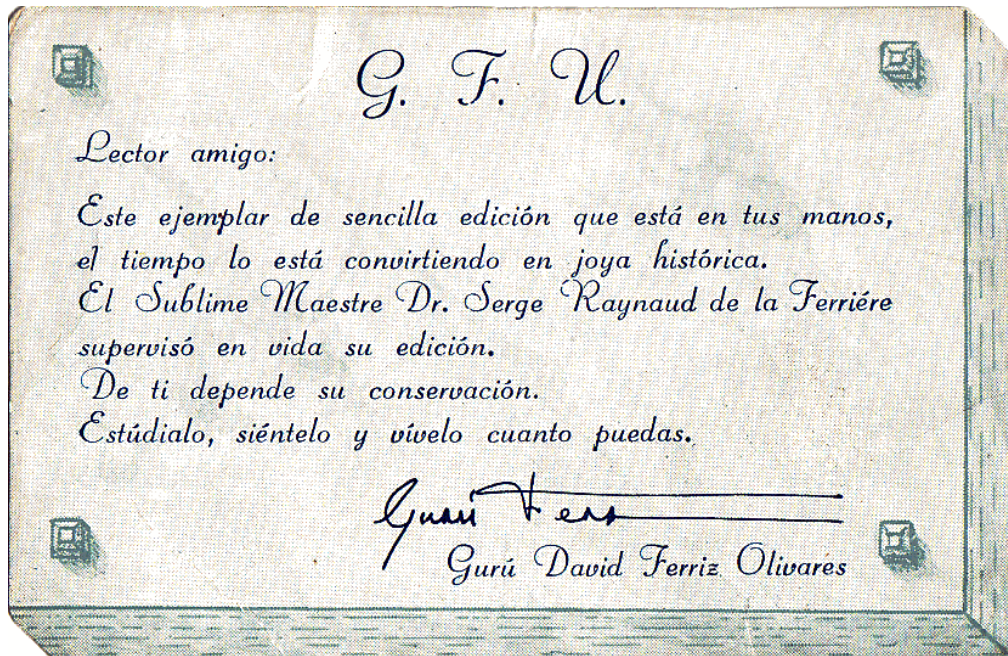 G. F. U.
Lector amigo:
Este ejemplar de sencilla edición que está en tus manos,
el tiempo lo está convirtiendo en joya histórica.
El Sublime Maestre Dr. Serge Raynaud de la Ferriére
supervisó en vida su edición.
De ti depende su conservación.
Estúdialo, siéntelo y vívelo cuanto puedas.
Gurú Ferr
Gurú David Ferriz Olivares